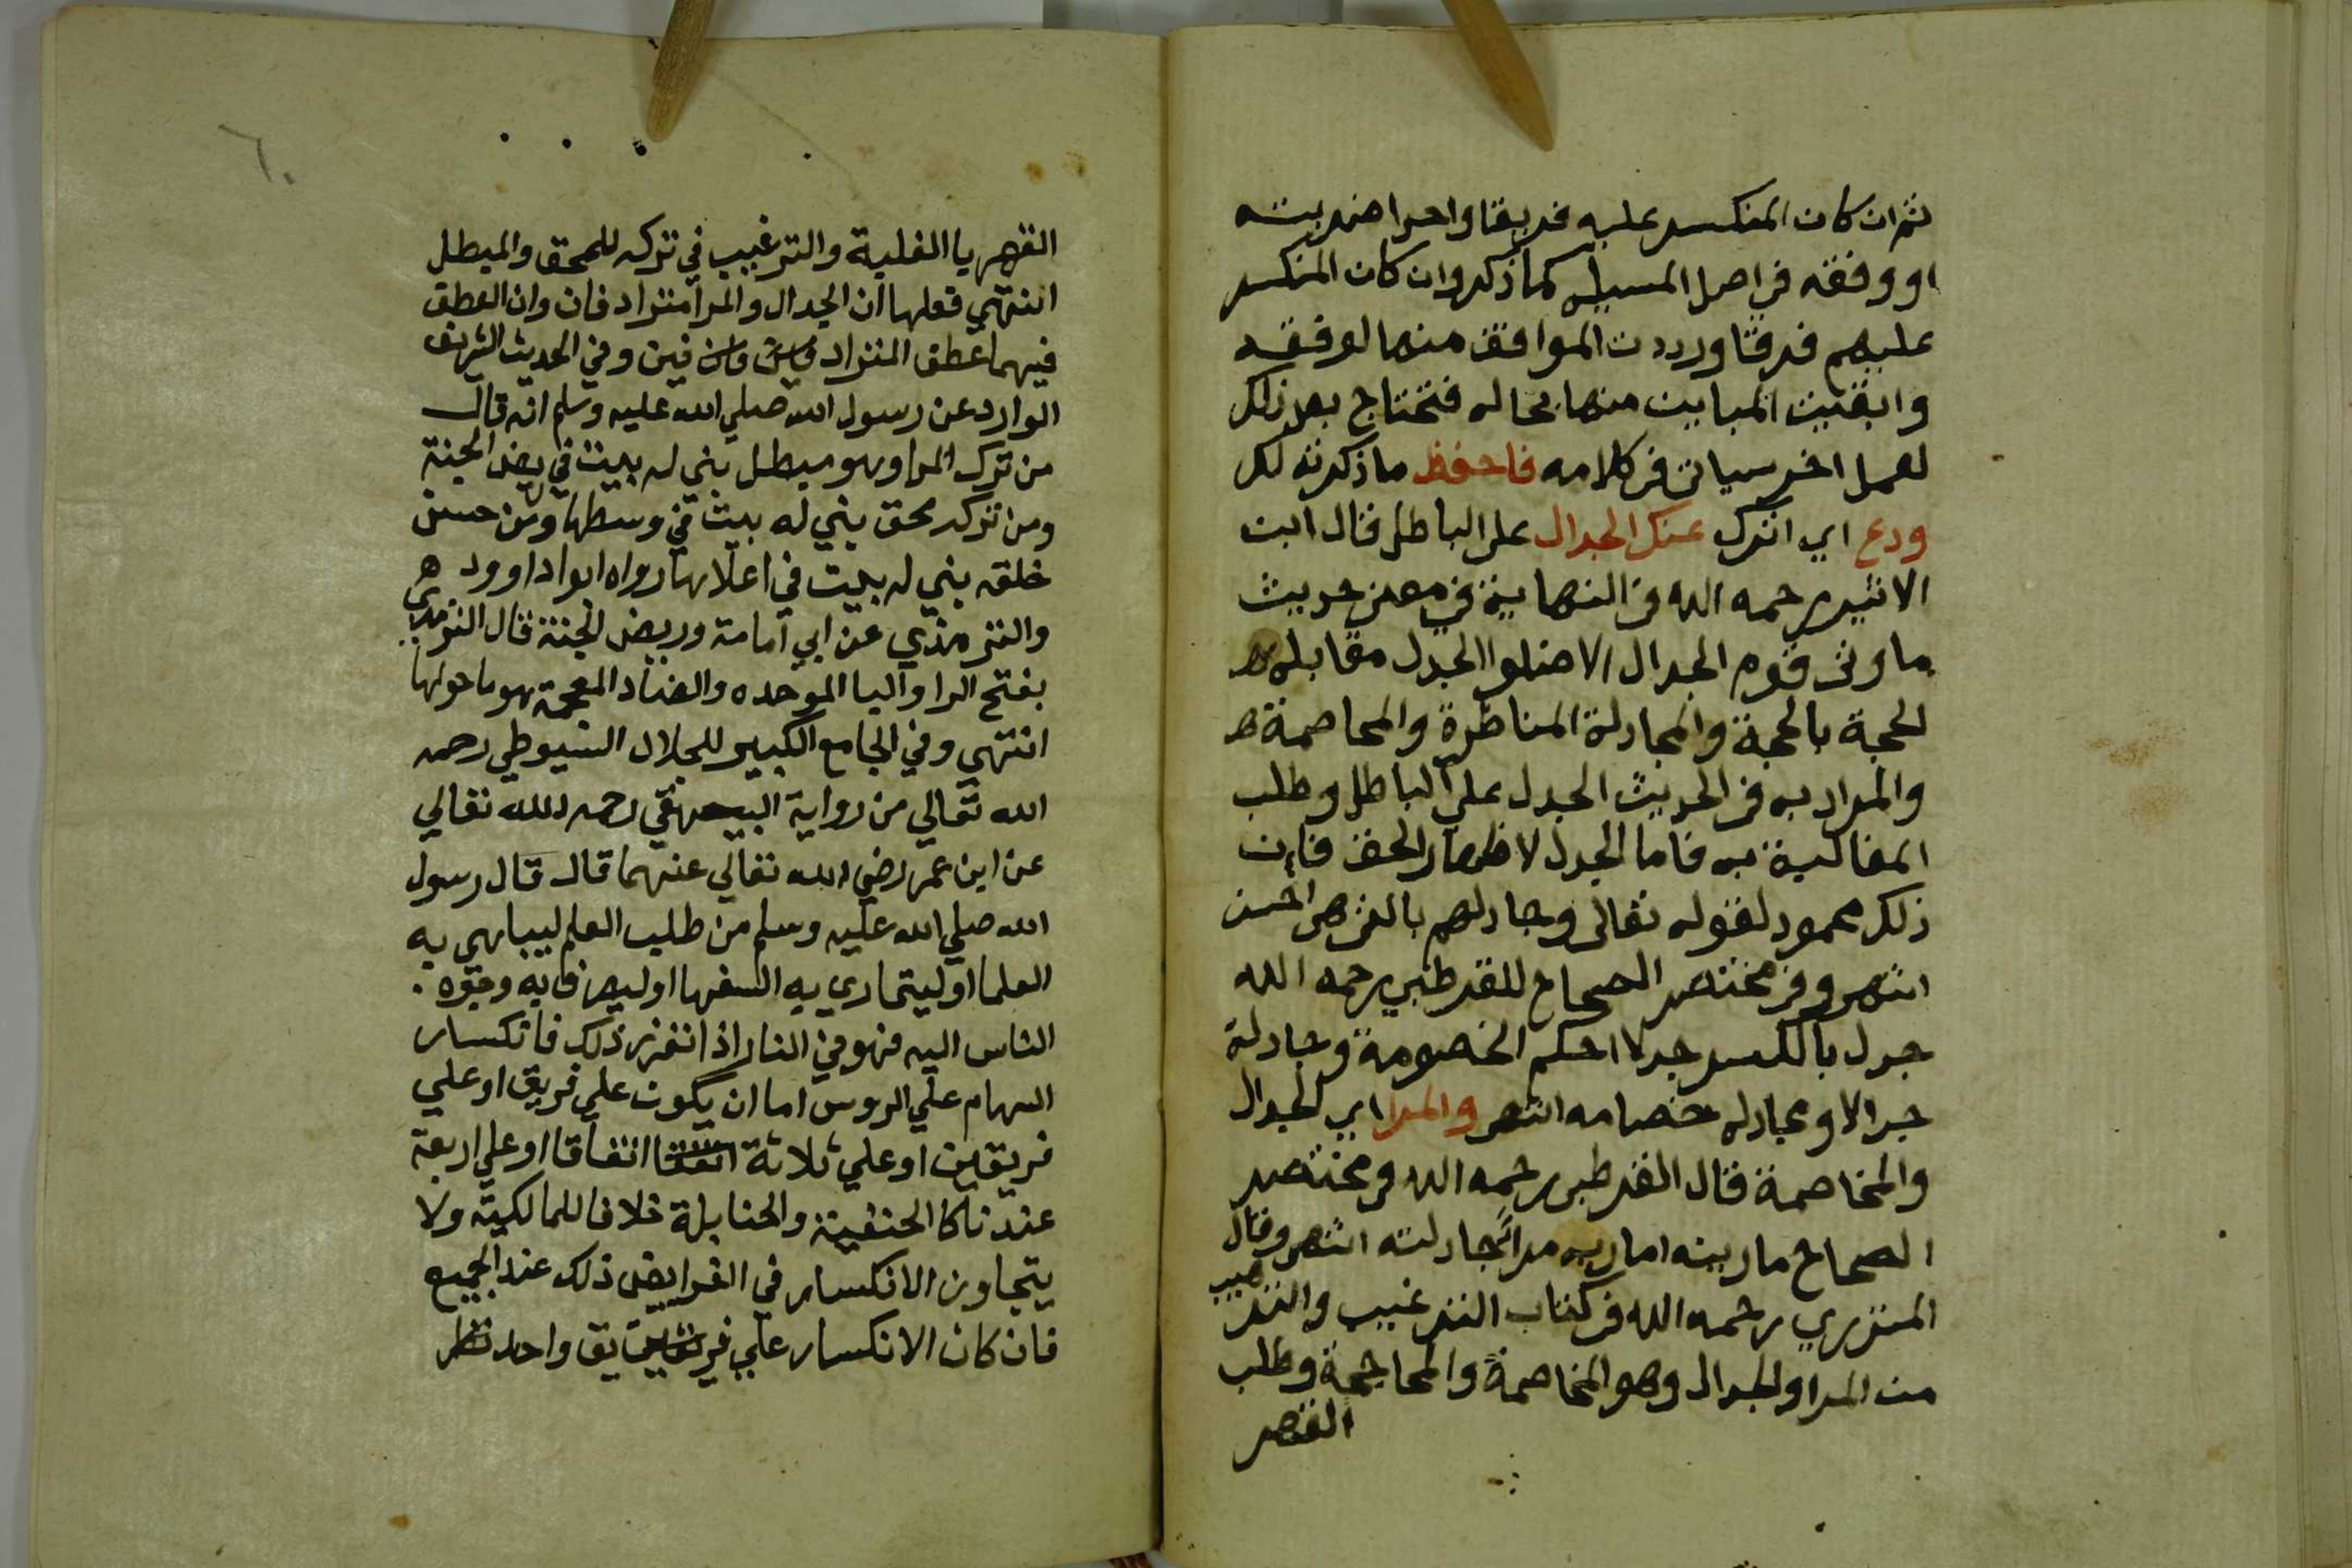 ثم ان كان المنكسر عليه فريقا واحدا ضربته
او وفقه في اصل المسيله كما ذكر وان كان المنكسر
عليهم فرقا ورددت الموافق منها لوفقه
وابقيت المباين منها بحاله فتحتاج بعد ذلك
لعمل اخر سياتى فى كلامه فاحفظ ما ذكرته لك
ودع اي اترك عنك الجدال على الباطل قال ابن
الاثير رحمه الله فى النهاية في معنى حديث
ما اوتى قوم الجدال الا ضلوا الجدل مقابله
الحجة بالحجة والمجادلة المناظرة والمخاصمة
والمراد به فى الحديث الجدل على الباطل وطلب
المغالبة به فاما الجدل لاظهار الحق فان
ذلك محمود لقوله تعالى وجادلهم بالتى هى احسن
انتهى وفى مختصر الصحاح للقرطبي رحمه الله
جدل بالكسر جدلا احكم الخصومة وجادلة
جدالا ومجادله خصامه انتهى والمرا اي الجدال
والمخاصمة قال القرطبى رحمه الله فى مختصر
الصحاح ماريته اماريه مراً جادلته انتهى وقال
المنذري رحمه الله فى كتاب الترغيب والترهيب
من المرا والجدال وهو المخاصمة والمحاججة وطلب
القهر
٦٠
القهر يا الغلبة والترغيب في تركه للمحق والمبطل
انتهي فعلها ان الجدال والمرا متراد فان وان العطف
فيهما عطف المتراد فين وفي الحديث الشريف
الوارد عن رسول الله صلي الله عليه وسلم انه قال
من ترك المرا وهو مبطل بني له بيت في ربض الجنة
ومن تركه محق بني له بيت في وسطها ومن حسن
خلقه بني له بيت في اعلاها رواه ابوا داوود
والترمذي عن ابي امامة وربض الجنة قال الترمذي هى
بفتح الرا والبا الموحده والضاد المعجمة هو ما حولها
انتهي وفي الجامع الكبير للجلال السيوطي رحمه
الله تعالي من رواية البيهقي رحمه الله تعالي
عن ابن عمر رضي الله تعالي عنهما قال قال رسول
الله صلي الله عليه وسلم من طلب العلم ليباهي به
العلما او ليتماري به السفها او ليصرف به وجوه
الناس اليه فهو في النار اذا تقرر ذلك فانكسار
السهام علي الروس اما ان يكون علي فريق او علي
فريقين او علي ثلاثة اتفاقا او علي اربعة
عندنا كا الحنفية والحنابلة خلافا للمالكية ولا
يتجاوز الانكسار في الفرايض ذلك عند الجميع
فان كان الانكسار علي فريق واحد نظر